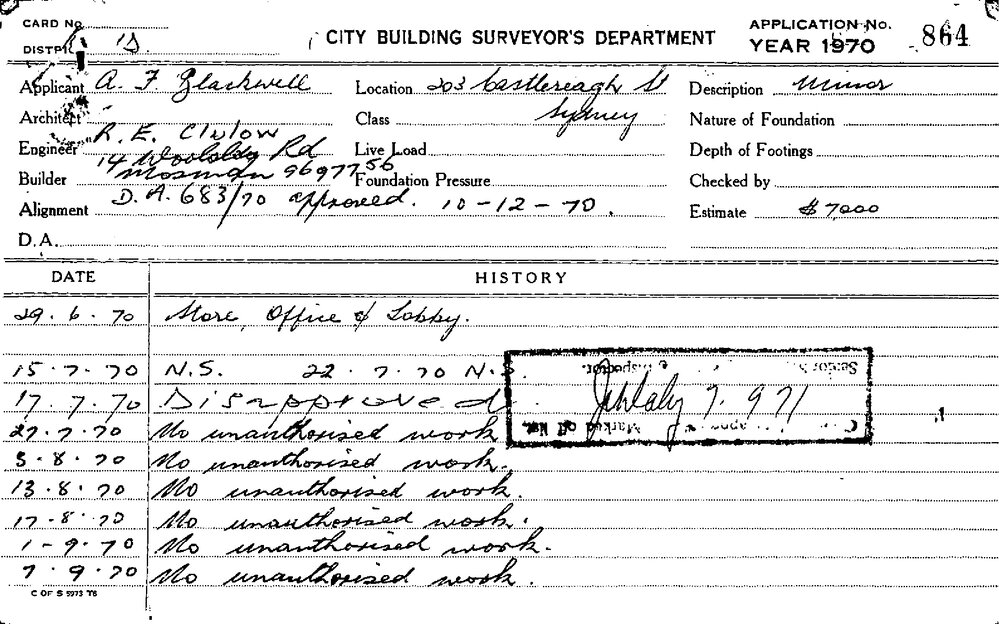 CARD No.
DISTRICT
CITY BUILDING SURVEYOR'S DEPARTMENT
APPLICATION No.
YEAR 1970
864
Applicant A. F. Blackwell
Location 203 Castlereagh St
Description Minor
Architect
Class Sydney
Nature of Foundation
Engineer R. E.
Live Load
Depth of Footings
14 Rd
Builder Mosman 9697756
Foundation Pressure
Checked by
Alignment D.A. 683/70 approved. 10-12-70.
Estimate $7000
D.A.
DATE HISTORY
29.6.70 Store, Office & Lobby.
15.7.70 N.S. 22.7.70 N.S.
17.7.70 Disapproved
27.7.70 No unauthorised work
3.8.70 No unauthorised work.
13.8.70 No unauthorised work.
17.8.70 No unauthorised work.
1-9.70 No unauthorised work.
7.9.70 No unauthorised work.
Inspector.
7.9 71
Marked off
C OF S 5973